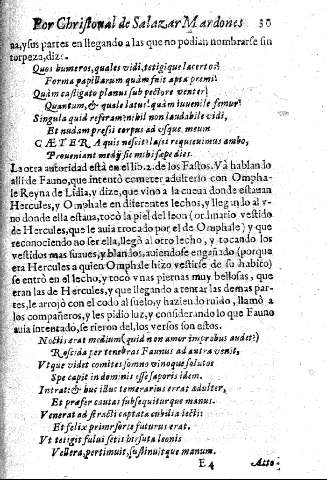 Por Christoual de Salazar Mardones 30
na, y sus partes en llegando a las que no podian nombrarse sin
torpeza, dize.
Quos humeros, quales vidi, tetigique lacertos?
Forma papillarum quàm fuit apta premi?
Quàm castigato planus sub pectore venter?
Quantum, & quale latus! quàm iuuenile femur!
Singula quid referam? nihil non laudabile vidi,
Et nudam pressi corpus ad vsque meum
CÆTERA quis nescit? lassi requieuimus ambo,
Proueniant medij sic mihi sæpe dies.
La otra autoridad está en el lib. 2. de los Fastos. Va hablando
alli de Fauno, que intentó cometer adulterio con Ompha-
le Reyna de Lidia, y dize, que vino a la cueua donde estauan
Hercules, y Omphale en diferentes lechos, y llegando al v-
no donde ella estaua, tocò la piel del leon (ordinario vestido
de Hercules, que le auia trocado por el de Omphale) y que
reconociendo no ser ella, llegò al otro lecho, y tocando los
vestidos mas suaues, y blandos, auiendose engañado (porque
era Hercules a quien Omphale hizo vestirse de su habito)
se entrò en el lecho, y tocò vnas piernas muy bellosas, que
eran las de Hercules, y que llegando a tentar las demas par-
tes, le arrojò con el codo al suelo, y haziendo ruido, llamò a
los compañeros, y les pidio luz, y considerando lo que Fauno
auia intentado, se rieron del, los versos son estos.
Noctis erat medium (quid non amor improbus audet?)
Roscida per tenebras Faunus ad antra venit,
Vtque videt comites somno vinoque solutos
Spe capit in dominis esse saporis idem.
Intrat: & huc illuc temerarius errat adulter,
Et præfert cautas subsequiturque manus.
Venerat ad stracti captata cubilia lecti:
Et felix prima sorte futurus erat.
Vt tetigit fului setis hirsuta leonis
Vellera, pertimuit, sustinuitque manum.
E 4 Atto-